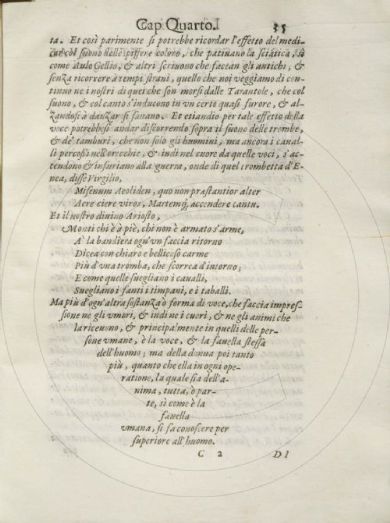 Cap Quarto.I 35
ta. Et così parimente si potrebbe ricordar l'effetto del medi-
car col suono delle piffere coloro, che patiuano la sciatica, sì
come Aulo Gellio, & altri scriuono che facean gli antichi, &
senza ricorrere à tempi strani, quello che noi veggiamo di con-
tinuo ne i nostri di quei che son morsi dalle Tarantole, che col
suono, & col canto s'inducono in vn certo quasi furore, & al-
zandosi à danzar si sanano. Et etiandio per tale effetto della
voce potrebbesi andar discorrendo sopra il suono delle trombe,
& de' tamburi, che non solo gli huomini, ma ancora i caual-
li percossi nell'orecchie, & indi nel cuore da quelle voci, s'ac-
cendono & infuriano alla guerra, onde di quel trombetta d'E-
nea, disse Virgilio,
Misenum Aeoliden, quo non præstantior alter
Aere ciere viros, Martemq; accendere cantu.
Et il nostro diuino Ariosto,
Monti chi è à piè, chi non è armato s'arme,
A' la bandiera ogn'vn faccia ritorno
Dicea con chiaro e bellicoso carme
Più d'vna tromba, che scorrea d'intorno;
E come quelle suegliano i caualli,
Suegliano i fanti i timpani, e i taballi.
Ma più d'ogn'altra sistanza ò forma di voce, che faccia impres-
sione ne gli vmori, & indi ne i cuori, & ne gli animi che
la riceuono, & principalmente in quelli delle per-
sone vmane, è la voce, & la fauella stessa
dell'huomo; ma della donna poi tanto
più, quanto che ella in ogni ope-
ratione, la quale sia dell'a-
nima, tutta, ò par-
te, sì come è la
fauella
vmana, si fa conoscere per
superiore all'huomo.
C 2 DI